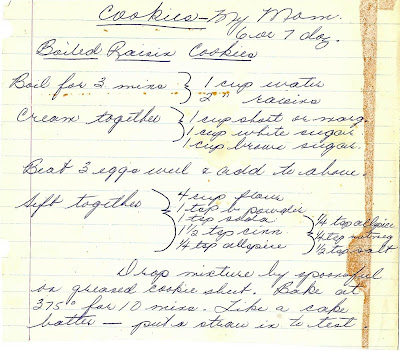 Cookies - My Mom.
6 or 7 doz.
Boiled Raisin Cookies
Boil for 3 mins } 1 cup water
2 " raisins
Cream together } 1 cup short or marg.
1 cup white sugar
1 cup brown sugar.
Beat 3 eggs well & add to above.
Sift together } 4 cup flour
1 tsp b powder
1 tsp soda
1 1/2 tsp cinn
1/4 tsp allspice
} 1/4 tsp allspice
1/4 tsp nutmeg
1/2 tsp salt
Drop mixture by spoonful
on greased cookie sheet. Bake at
375° for 10 mins. Like a cake
batter — put a straw in to test.